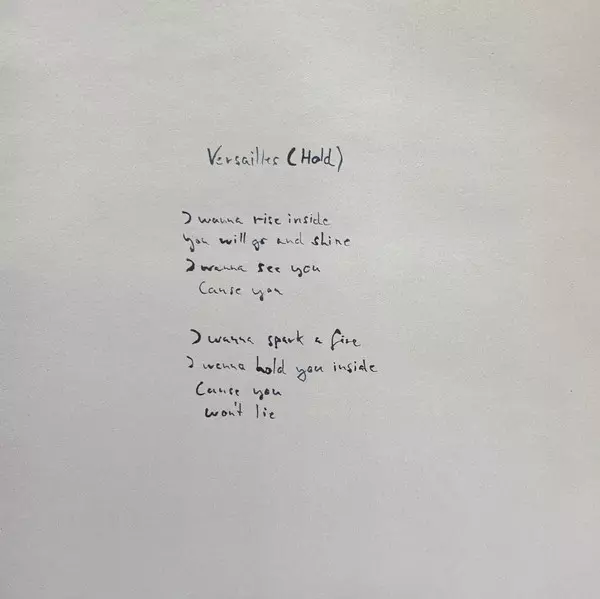 Versailles (Hold)
I wanna rise inside
You will go and shine
I wanna see you
Cause you
I wanna spark a fire
I wanna hold you inside
Cause you
won't lie